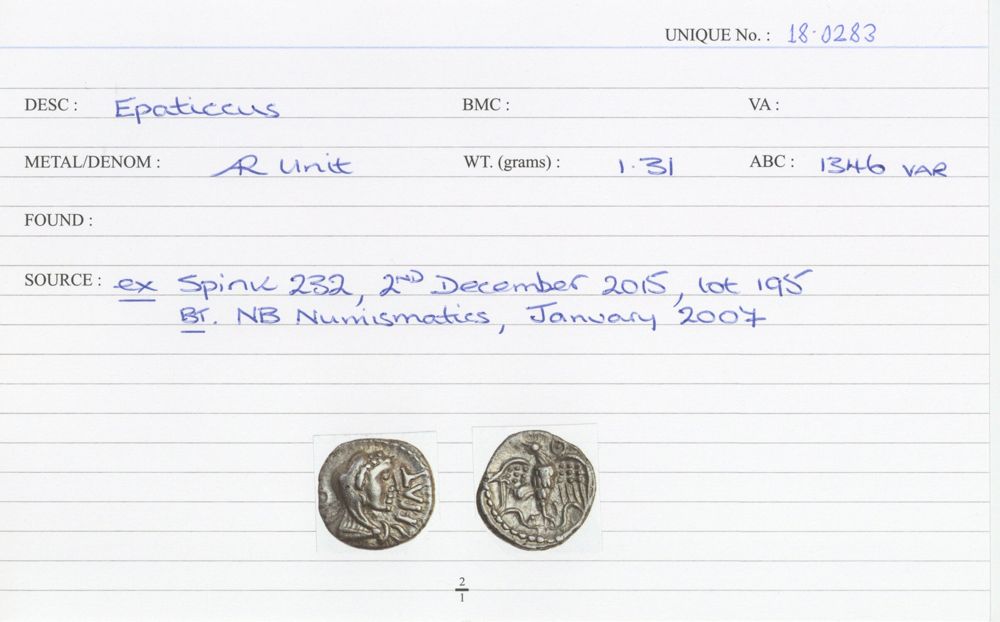 UNIQUE No. : 18·0283
DESC : Epaticcus BMC : VA :
METAL/DENOM : AR Unit WT. (grams) : 1·31 ABC : 1346 VAR
FOUND :
SOURCE : ex Spink 232, 2ND December 2015, lot 195
BT. NB Numismatics, January 2007
2
1